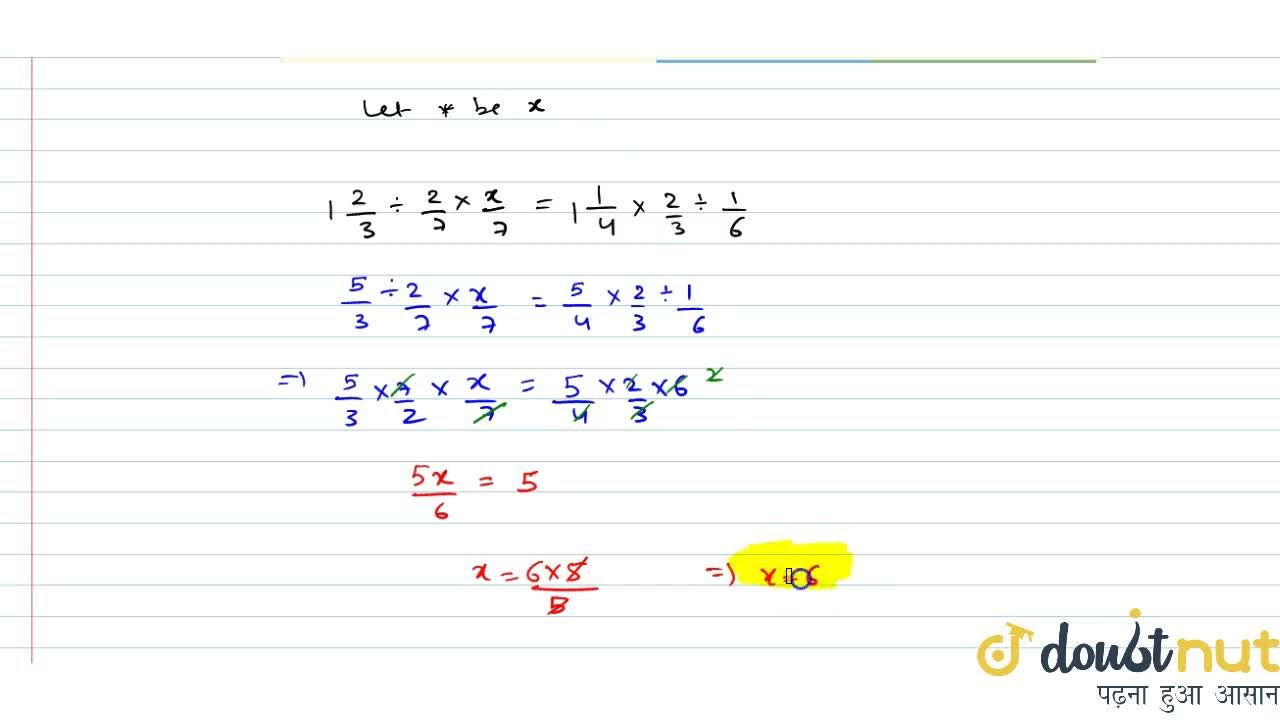 Let * be x
1 2/3 ÷ 2/7 × x/7 = 1 1/4 × 2/3 ÷ 1/6
5/3 ÷ 2/7 × x/7 = 5/4 × 2/3 ÷ 1/6
=) 5/3 × 7/2 × x/7 = 5/4 × 2/3 × 6 2
5x/6 = 5
x = 6×5/5 =) x = 6
doubtnut
पढ़ना हुआ आसान